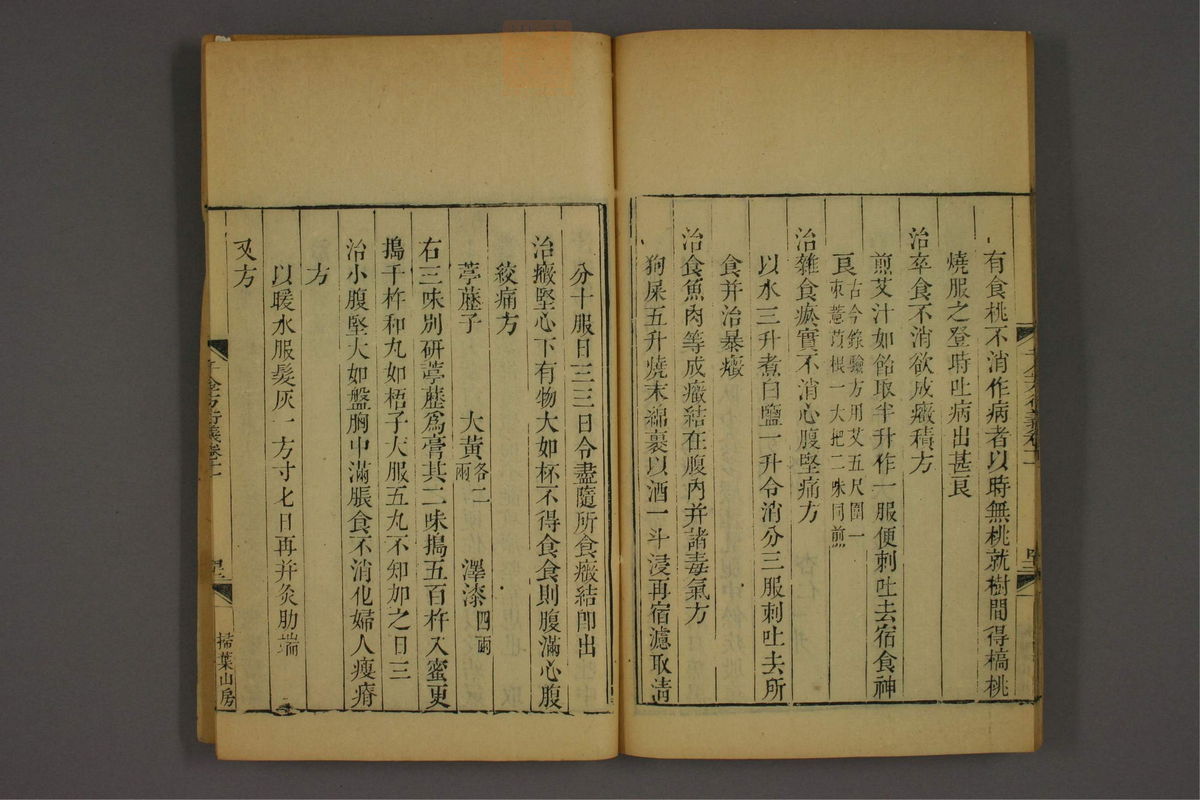 有食桃不消作病者以時無桃就樹間得槁桃
燒服之登時吐病出甚良
治卒食不消欲成癥積方
煎艾汁如飴取半升作一服便刺吐去宿食神
良古今錄驗方用艾五尺圍一
束薏苡根一大把二味同煎
治雜食瘀實不消心腹堅痛方
以水三升煮白鹽一升令消分三服刺吐去所
食并治暴癥
治食魚肉等成癥結在腹內并諸毒氣方
狗屎五升燒末綿裹以酒一斗浸再宿濾取清
分十服日三三日令盡隨所食癥結卽出
治癥堅心下有物大如杯不得食食則腹滿心腹
絞痛方
葶藶子 大黃各二兩 澤漆四兩
右三味別研葶藶爲膏其二味搗五百杵入蜜更
搗千杵和丸如梧子大服五丸不知加之日三
治小腹堅大如盤胸中滿脹食不消化婦人瘦瘠
方
以暖水服髮灰一方寸七日再并灸肋端
又方
千金方衍義卷十一
掃葉山房